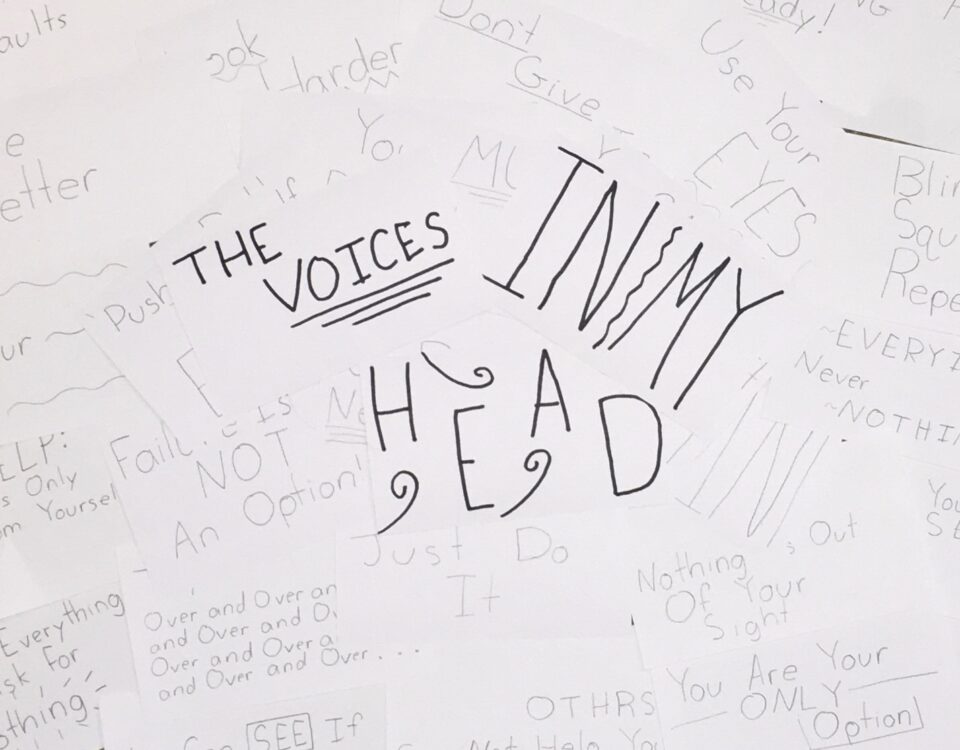 THE
VOICES
IN MY
HEAD
aults
ook
Harder
Don't
Give
ady!
Use Your
EYES
e
etter
Yo
"if
Blin
Squ
Repe
Push
ur ~
~EVERYI
Never
~NOTHI
ELP:
s Only
om Yourself
Failure Is
NOT
An Option!
Just Do
It
IN
Nothing
Is Out
Of Your
Sight
You
SE
Everything
sk For
thing
Over and Over an
and Over and Ov
Over and Over a
and Over and Over . . .
SEE If
OTHRS
Not Help You
You Are Your
ONLY
Option